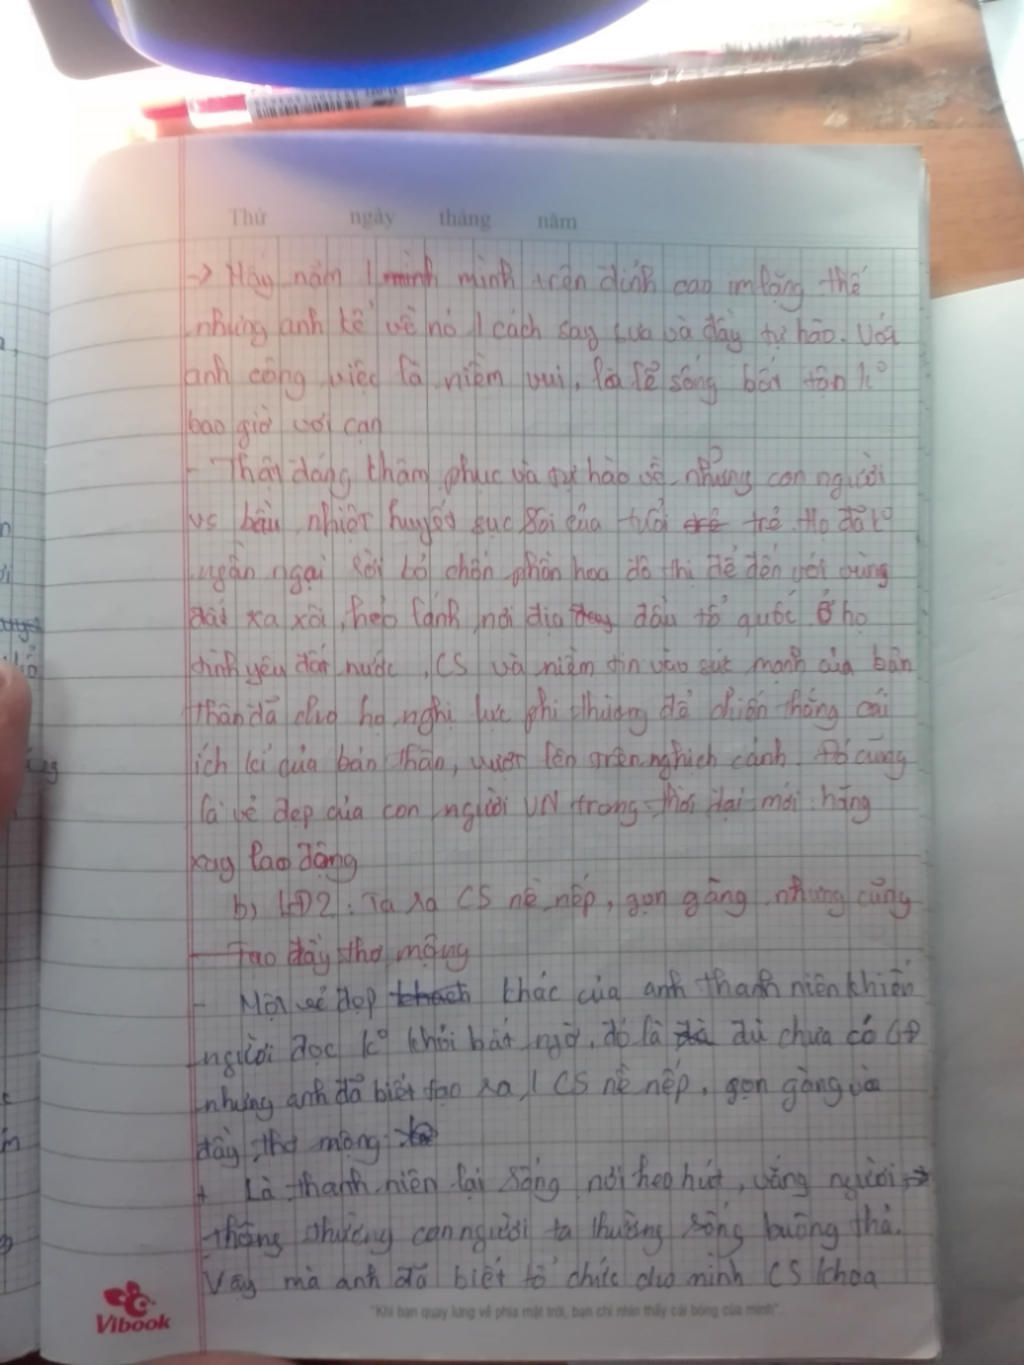 Thứ ngày tháng năm
-> Mấy năm 1 mình mình trên đỉnh cao im lặng thế
nhưng anh kể về nó 1 cách say sưa và đầy tự hào. Với
anh công việc là niềm vui, là lẽ sống bất tận k°
bao giờ vơi cạn
- Thật đáng thâm phục và tự hào về những con người
vs bầu nhiệt huyết sục sôi của tuổi trẻ trẻ Họ đã k°
ngần ngại rời bỏ chốn phồn hoa đô thị để đến với vùng
đất xa xôi, hẻo lánh, nơi địa đầu tổ quốc. Ở họ
tình yêu đất nước, CS và niềm tin vào sức mạnh của bản
thân đã cho họ nghị lực phi thường để chiến thắng cái
ích kỉ của bản thân, vượt lên trên nghịch cảnh. Đó cũng
là vẻ đẹp của con người VN trong thời đại mới hăng
say lao động
b) LĐ2: Tạo ra CS nề nếp, gọn gàng nhưng cũng
đầy thơ mộng
- Một vẻ đẹp khách khác của anh thanh niên khiến
người đọc k° khỏi bất ngờ, đó là đã dù chưa có GĐ
nhưng anh đã biết tạo ra 1 CS nề nếp, gọn gàng và
đầy thơ mộng
+ Là thanh niên lại sống nơi heo hút, vắng người ->
thông thường con người ta thường sống buông thả.
Vậy mà anh đã biết tổ chức cho mình CS khoa
Vibook
"Khi bạn quay lưng về phía mặt trời, bạn chỉ nhìn thấy cái bóng của mình".